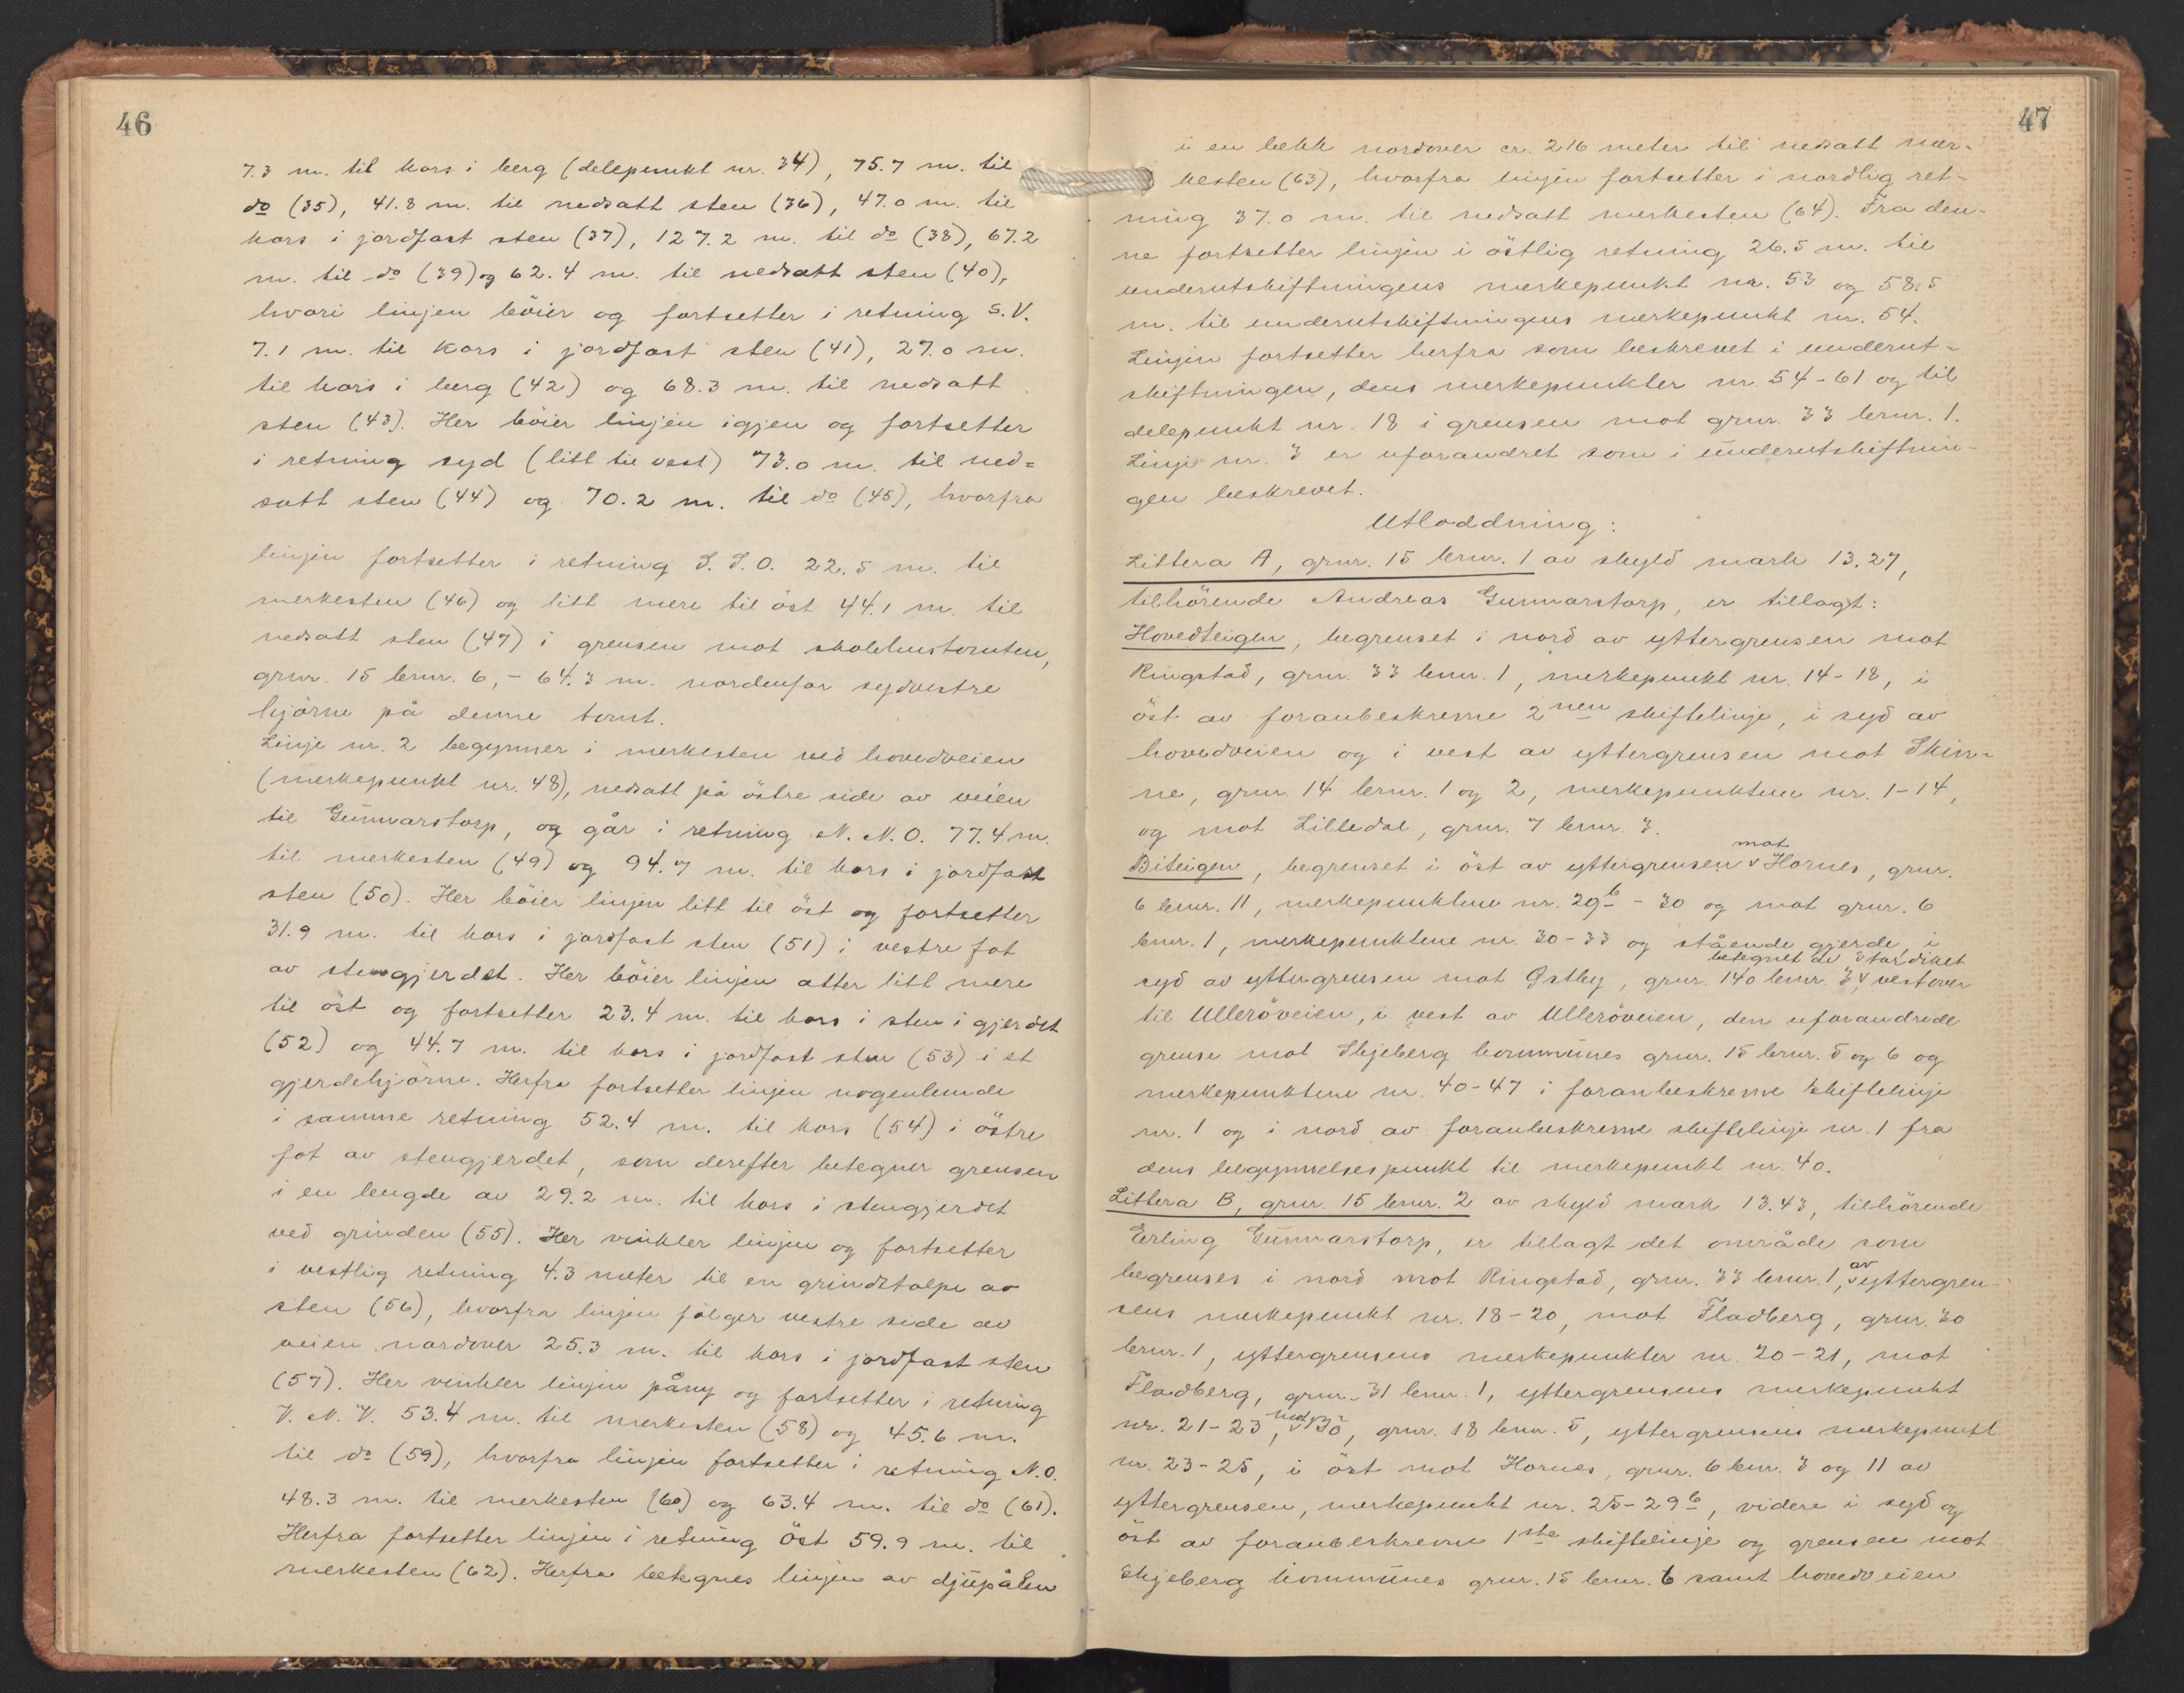 46
7.3 m. til kors i berg (delepunkt nr. 34), 75.7 m. til
do (35), 41.8 m. til nedsatt sten (36), 47.0 m. til
kors i jordfast sten (37), 127.2 m. til do (38), 67.2
m. til do (39) og 62.4 m. til nedsatt sten (40),
hvori linjen böier og fortsetter i retning S.V.
7.1 m. til kors i jordfast sten (41), 27.0 m.
til kors i berg (42) og 68.3 m. til nedsatt
sten (43). Her böier linjen igjen og fortsetter
i retning syd (litt til vest) 73.0 m. til ned=
satt sten (44) og 70.2 m. til do (45), hvorfra
linjen fortsetter i retning S.S.O. 22.5 m. til
merkesten (46) og litt mere til öst 44.1 m. til
nedsatt sten (47) i grensen mot skolehustomten,
grnr. 15 brnr. 6, - 64.3 m. nordenfor sydvestre
hjörne på denne tomt.
Linje nr. 2 begynner i merkesten ved hovedveien
(merkepunkt nr. 48), nedsatt på östre side av veien
til Gunnarstorp, og går i retning N.N.O. 77.4 m.
til merkesten (49) og 94.7 m. til kors i jordfast
sten (50). Her böier linjen litt til öst og fortsetter
31.9 m. til kors i jordfast sten (51) i vestre fot
av stengjerdet. Her böier linjen atter litt mere
til öst og fortsetter 23.4 m. til kors i sten i gjerdet
(52) og 44.7 m. til kors i jordfast sten (53) i et
gjerdehjörne. Herfra fortsetter linjen nogenlunde
i samme retning 52.4 m. til kors (54) i östre
fot av stengjerdet, som derefter betegner grensen
i en lengde av 29.2 m. til kors i stengjerdet
ved grinden (55). Her vinkler linjen og fortsetter
i vestlig retning 4.3 meter til en grindstolpe av
sten (56), hvorfra linjen fölger vestre side av
veien nordover 25.3 m. til kors i jordfast sten
(57). Her vinkler linjen påny og fortsetter i retning
V.N.V. 53.4 m. til merkesten (58) og 45.6 m.
til do (59), hvorfra linjen fortsetter i retning N.O.
48.3 m. til merkesten (60) og 63.4 m. til do (61).
Herfra fortsetter linjen i retning Öst 59.9 m. til
merkesten (62). Herfra betegnes linjen av djupålen
47
i en bekk nordover ca. 216 meter til nedsatt mer-
kesten (63), hvorfra linjen fortsetter i nordlig ret-
ning 37.0 m. til nedsatt merkesten (64). Fra den-
ne fortsetter linjen i östlig retning 26.5 m. til
underutskiftningens merkepunkt nr. 53 og 58.5
m. til underutskiftningens merkepunkt nr. 54.
Linjen fortsetter herfra som beskrevet i underut-
skiftningen, dens merkepunkter nr. 54-61 og til
delepunkt nr. 18 i grensen mot grnr. 33 brnr. 1.
Linje nr. 3 er uforandret som i underutskiftnin-
gen beskrevet.
Utloddning:
Littera A, grnr. 15 brnr. 1 av skyld mark 13.27,
tilhörende Andreas Gunnarstorp, er tillagt:
Hovedteigen, begrenset i nord av yttergrensen mot
Ringstad, grnr. 33 brnr. 1, merkepunkt nr. 14-18, i
öst av foranbeskrevne 2nen skiftelinje, i syd av
hovedveien og i vest av yttergrensen mot Skin-
ne, grnr. 14 brnr. 1 og 2, merkepunktene nr. 1-14,
og mot Lilledal, grnr. 7 brnr. 3.
Biteigen, begrenset i öst av yttergrensen mot Hornes, grnr.
6 brnr. 11, merkepunktene nr. 29b - 30 og mot grnr. 6
brnr. 1, merkepunktene nr. 30-33 og stående gjerde, i
syd av yttergrensen mot Ostby, grnr. 140 brnr. 3 betegnet av Stordiket vestover
til Ulleröveien, i vest av Ulleröveien, den uforandrede
grense mot Skjeberg kommunes grnr. 15 brnr. 5 og 6 og
merkepunktene nr. 40-47 i foranbeskrevne skiftelinje
nr. 1 og i nord av foranbeskrevne skiftelinje nr. 1 fra
dens begynnelsespunkt til merkepunkt nr. 40.
Littera B, grnr. 15 brnr. 2 av skyld mark 13.43, tilhörende
Erling Gunnarstorp, er tillagt det område som
begrenses i nord mot Ringstad, grnr. 33 brnr. 1, av yttergren-
sens merkepunkt nr. 18-20, mot Fladberg, grnr. 30
brnr. 1, yttergrensens merkepunkter nr. 20-21, mot
Fladberg, grnr. 31 brnr. 1, yttergrensens merkepunkt
nr. 21-23, mot Bö, grnr. 18 brnr. 5, yttergrensens merkepunkt
nr. 23-25, i öst mot Hornes, grnr. 6 brnr. 3 og 11 av
yttergrensen, merkepunkt nr. 25-29b, videre i syd og
öst av foranbeskrevne 1ste skiftelinje og grensen mot
Skjeberg kommunes grnr. 15 brnr. 6 samt hovedveien